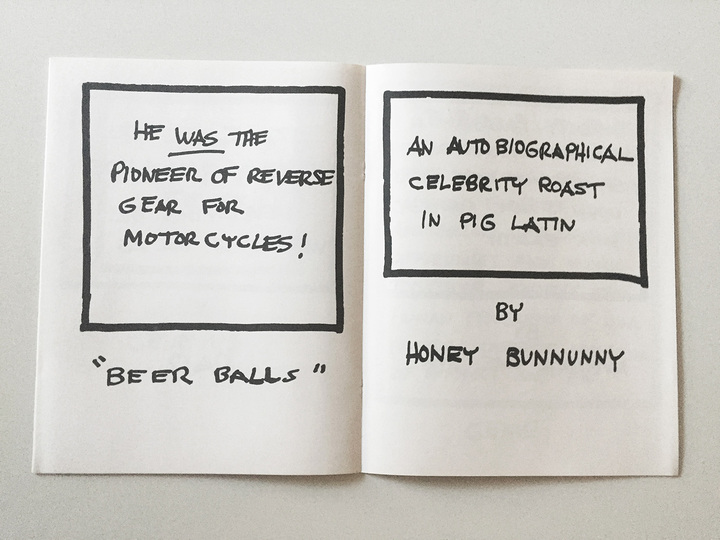 HE WAS THE
PIONEER OF REVERSE
GEAR FOR
MOTORCYCLES!
"BEER BALLS"
AN AUTOBIOGRAPHICAL
CELEBRITY ROAST
IN PIG LATIN
BY
HONEY BUNNUNNY